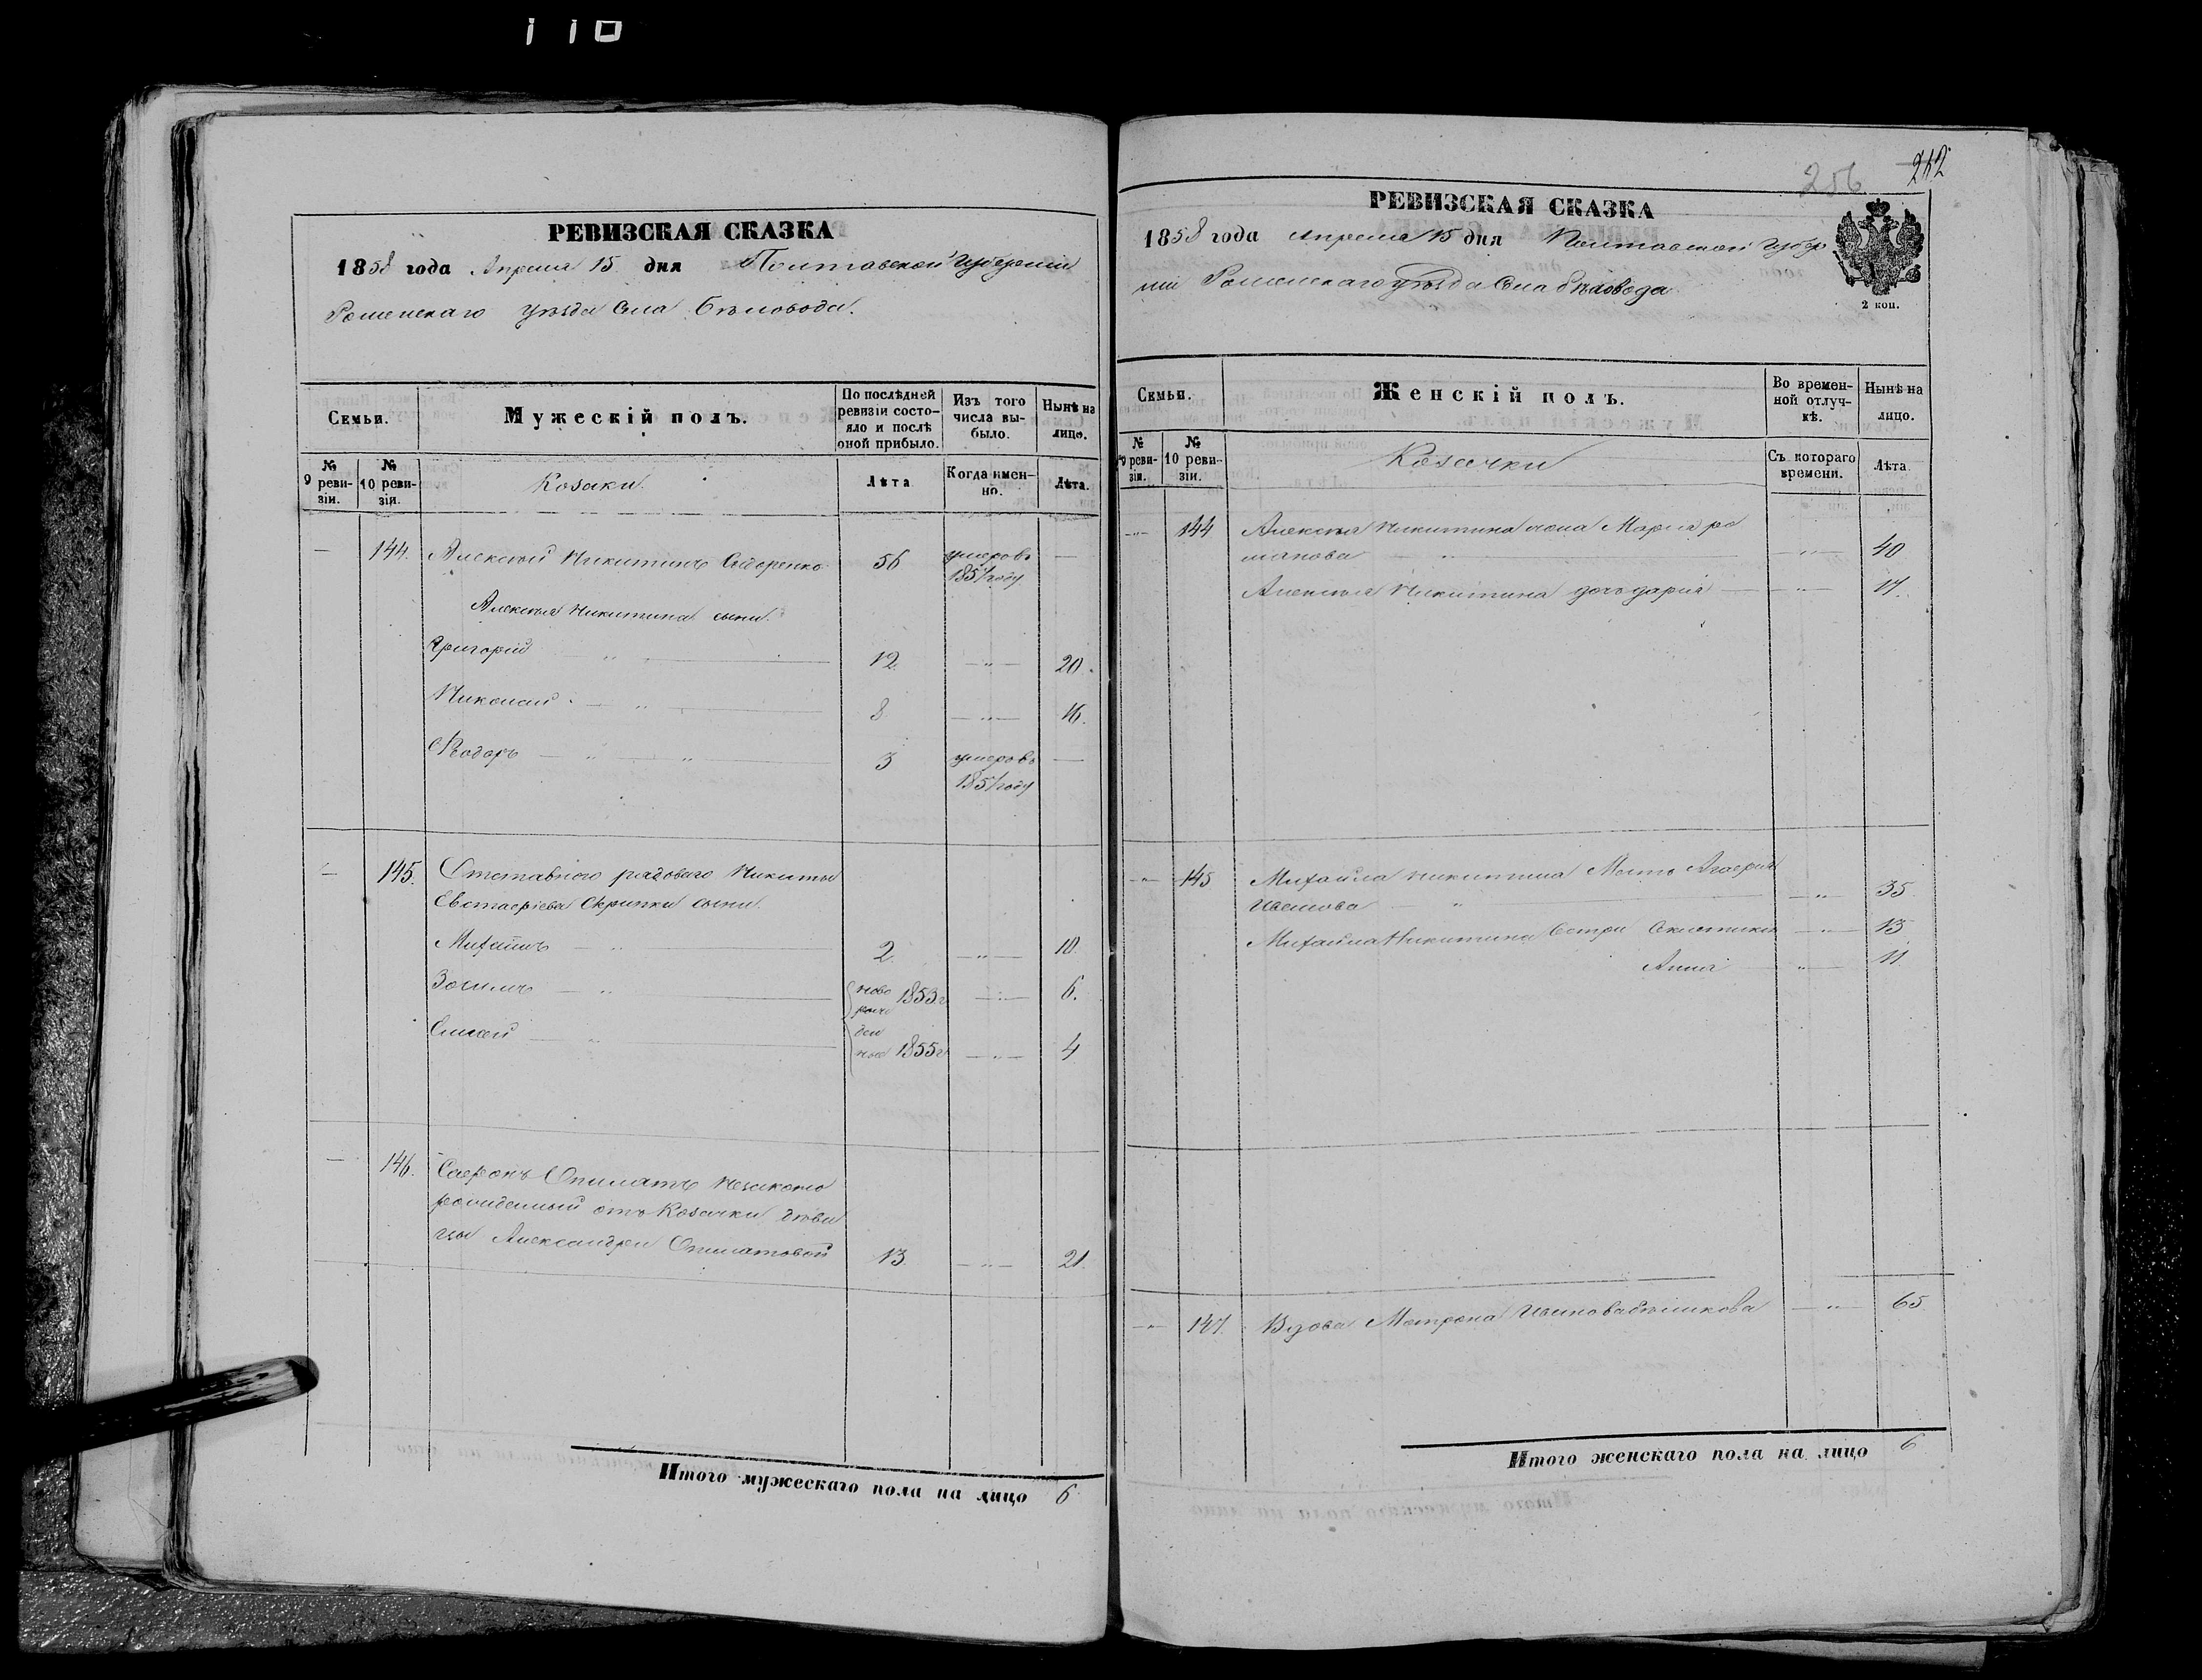 110
РЕВИЗСКАЯ СКАЗКА
1858 года Апреля 15 дня Полтавской Губернии
Роменскаго уѣзда Села Бѣловода.
Семьи.
Мужескій полъ.
По послѣдней ревизіи состояло и послѣ оной прибыло.
Изъ того числа выбыло.
Нынѣ на лицо.
№ 9 ревизіи.
№ 10 ревизіи.
Козаки.
Лѣта
Когда именно.
Лѣта.
144. Алексѣй Никитинъ Сидоренко 56 умеръ въ 1857 году
Алексѣя Никитина сыни.
Григорій 12 20.
Николай 8 16.
Ѳѣодоръ 3 умеръ въ 1851 году
145. Отставного рядоваго Никиты
Евстафіева Скрипки сыни.
Михайлъ 2. 10.
Зосимъ ново рож 1853 г 6.
Елисей ден ные 1855 г 4
146. Сафонъ Опилатъ незаконо
рожденный отъ Козачки дѣви
цы Александри Опилатовой 13 21.
Итого мужескаго пола на лицо 6
256 242
РЕВИЗСКАЯ СКАЗКА
1858 года апреля 15 дня Полтавской Губер
ніи Роменскаго уѣзда Села Бѣловода
2 коп.
Семьи.
Женскій полъ.
Во временной отлучкѣ.
Нынѣ на лицо.
№ 9 ревизіи.
№ 10 ревизіи.
Козачки
Съ котораго времени.
Лѣта.
144 Алексѣя Никитина жена Марія ро
манова 40
Алексѣя Никитина дочь дарія 17.
145 Михайла никитина Мать Агафія
Иванова 35.
Михайла Никитина Сестри 13.
Анна 11.
147. Вдова Матрона 65.
Итого женскаго пола на лицо 6